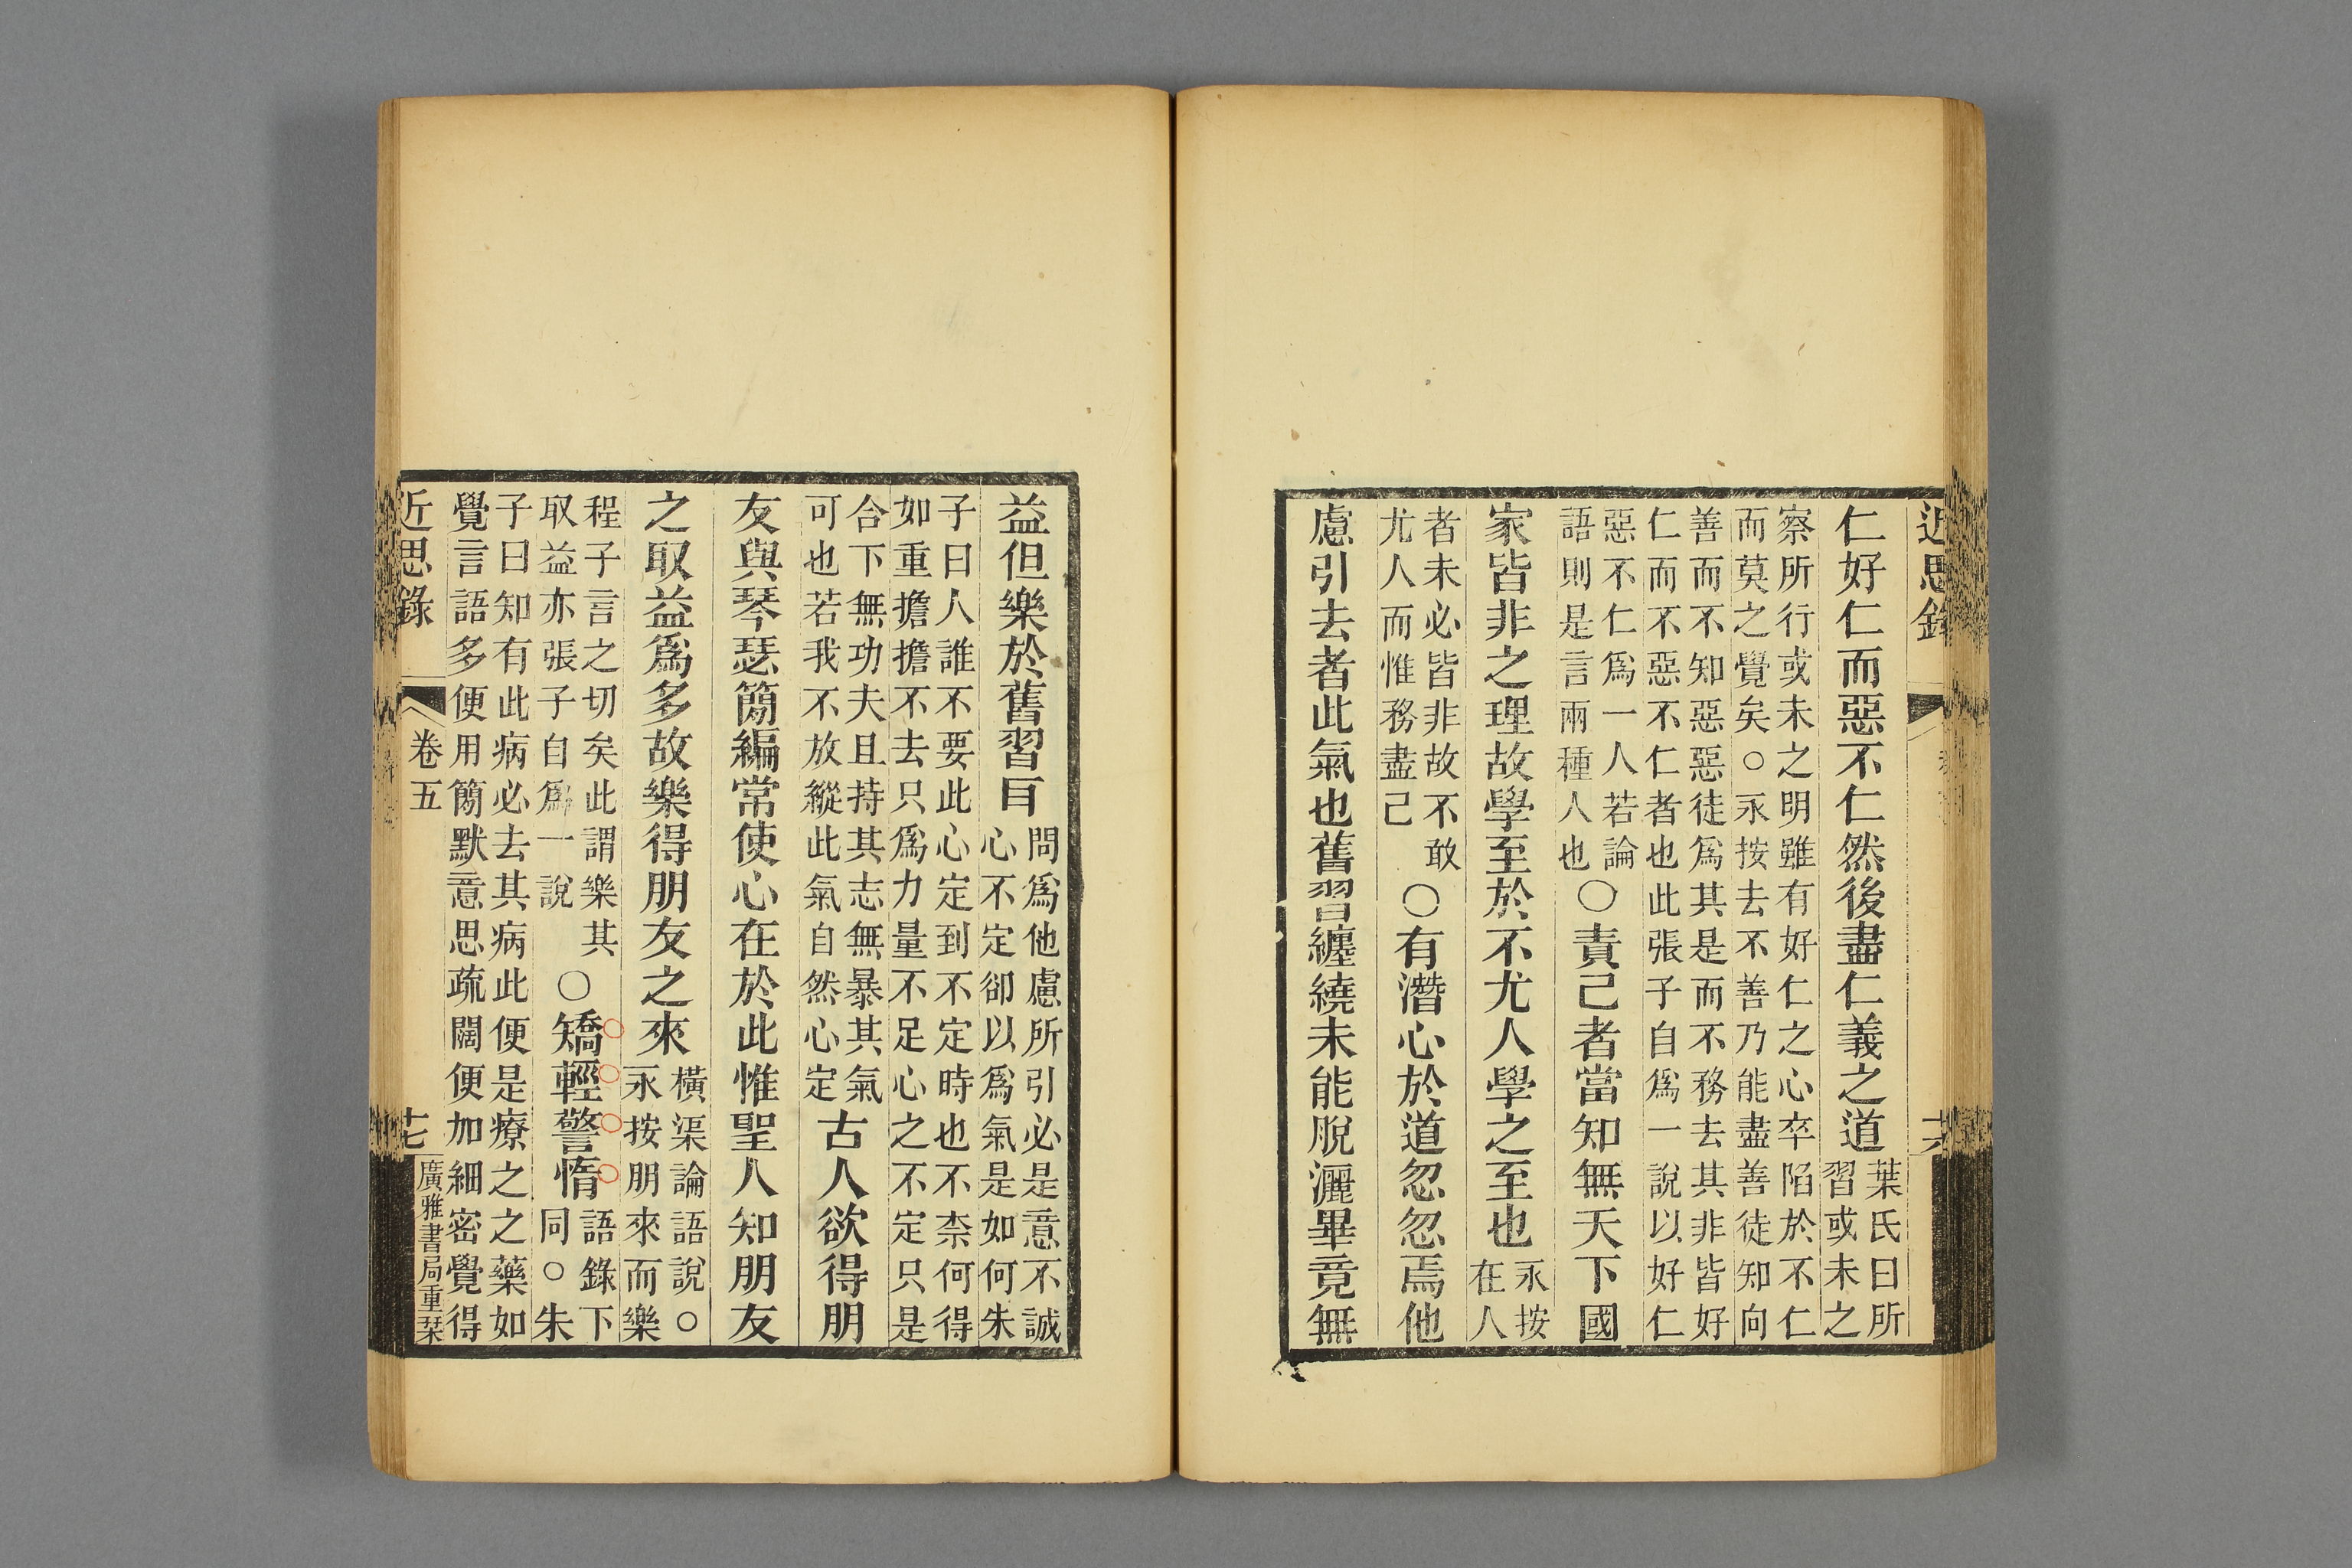 近思錄 十六
仁好仁而惡不仁然後盡仁義之道
葉氏曰所
習或未之
察所行或未之明雖有好仁之心卒陷於不仁
而莫之覺矣○永按去不善乃能盡善徒知向
善而不知惡惡徒爲其是而不務去其非皆好
仁而不惡不仁者也此張子自爲一說以好仁
惡不仁爲一人若論
語則是言兩種人也
○責己者當知無天下國
家皆非之理故學至於不尤人學之至也
永按
在人
者未必皆非故不敢
尤人而惟務盡己
○有潛心於道忽忽焉他
慮引去者此氣也舊習纏繞未能脫灑畢竟無
益但樂於舊習耳
問爲他慮所引必是意不誠
心不定卻以爲氣是如何朱
子曰人誰不要此心定到不定時也不柰何得
如重擔擔不去只爲力量不足心之不定只是
合下無功夫且持其志無暴其氣
可也若我不放縱此氣自然心定
古人欲得朋
友與琴瑟簡編常使心在於此惟聖人知朋友
之取益爲多故樂得朋友之來
橫渠論語說○
永按朋來而樂
程子言之切矣此謂樂其
取益亦張子自爲一說
○矯輕警惰
語錄下
同○朱
子曰知有此病必去其病此便是療之之藥如
覺言語多便用簡默意思疏闊便加細密覺得
近思錄 卷五 十七 廣雅書局重栞